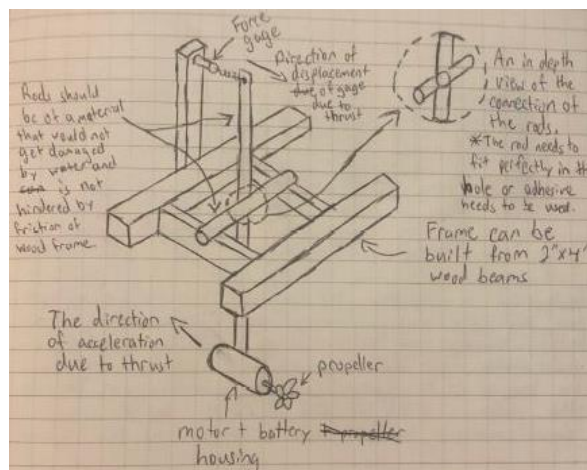 Force
gage
Direction of
displacement
due of gage
due to
thrust
An in depth
view of the
connection of
the rods.
*The rod needs to
fit perfectly in the
hole or adhesive
needs to be used.
Rods should
be of a material
that would not
get damaged
by water and
is not
hindered by
friction of
wood frame.
Frame can be
built from 2"x4"
wood beams
The direction
of acceleration
due to thrust
propeller
motor + battery + propeller
housing